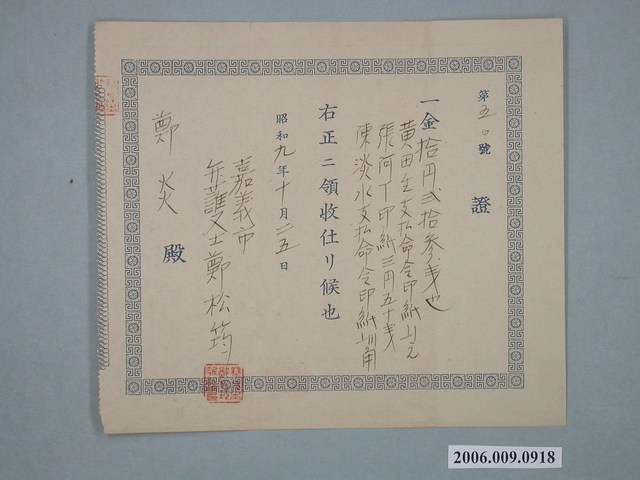 第五〇號
證
一金拾円弐拾参戋也
黄田生支払命令印紙
張阿丁印紙三円五十戋
陳淡水支払命令印紙
右正ニ領收仕リ候也
昭和九年十月二五日
嘉義市
弁護士鄭松筠
鄭火炎殿
2006.009.0918